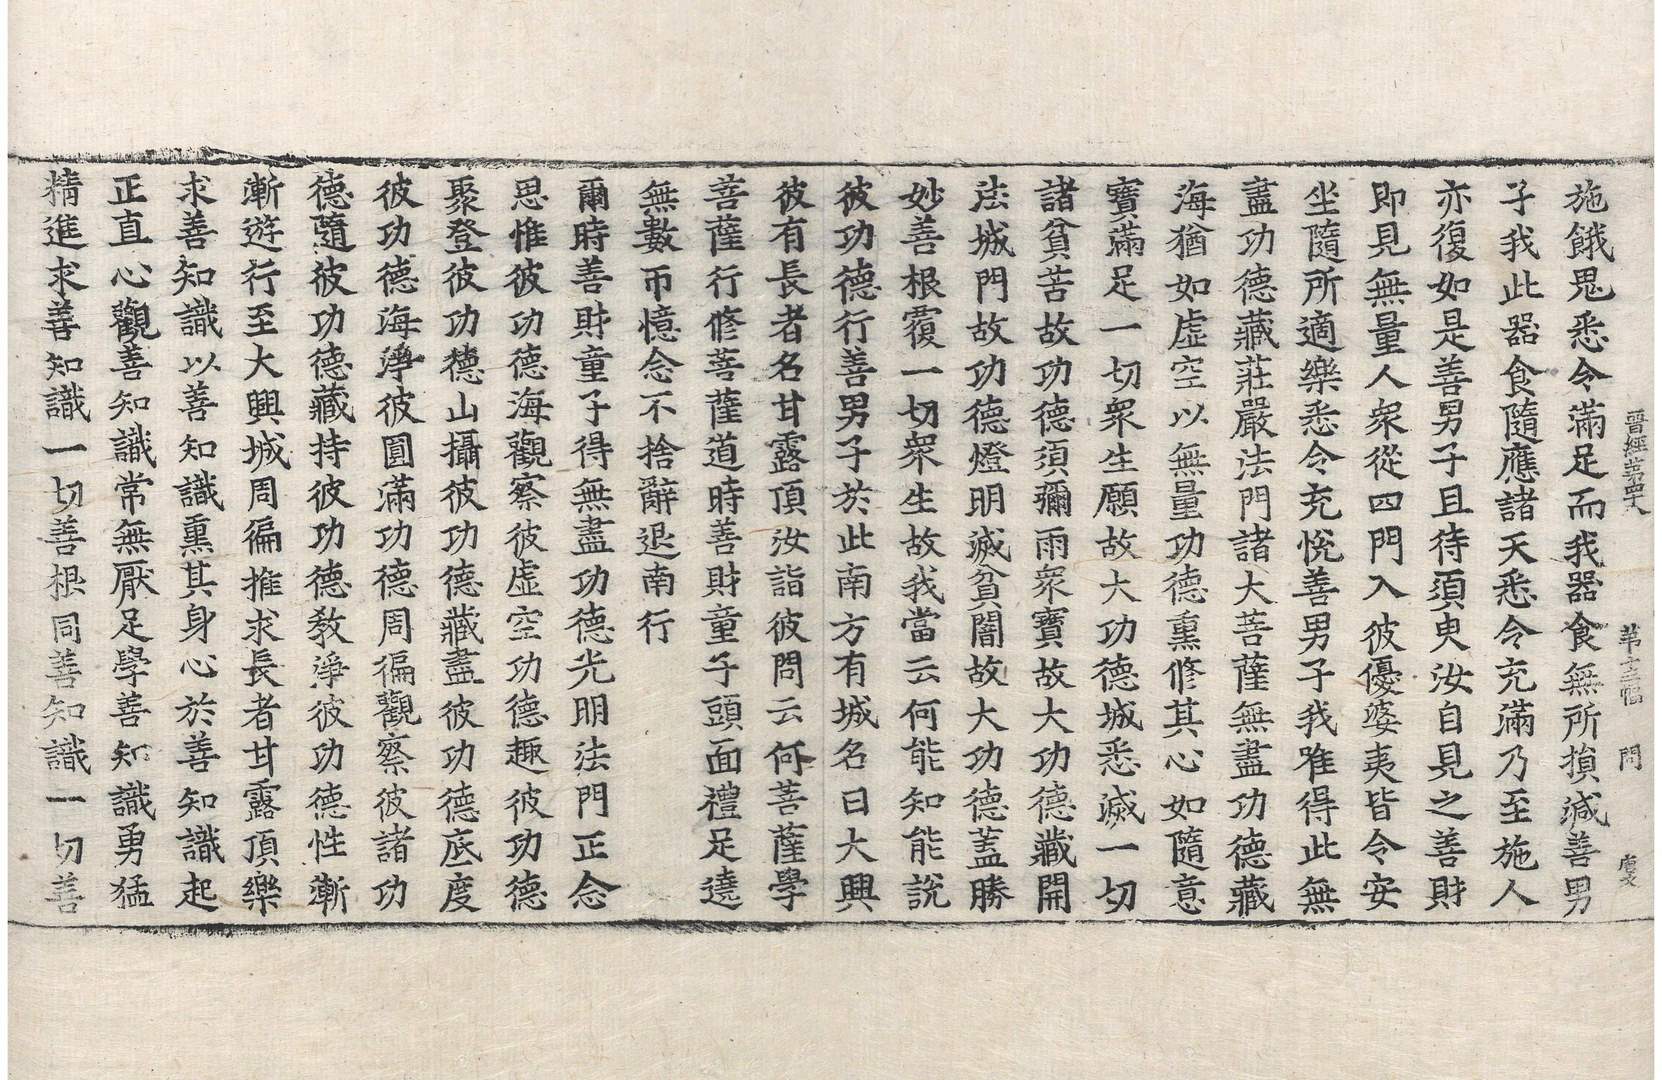 晉經第四十八　第十三幅　問
施餓鬼悉令滿足而我器食無所損減善男
子我此器食隨應諸天悉令充滿乃至施人
亦復如是善男子且待須臾汝自見之善財
即見無量人衆從四門入彼優婆夷皆令安
坐隨所適樂悉令充悅善男子我唯得此無
盡功德藏莊嚴法門諸大菩薩無盡功德藏
海猶如虛空以無量功德熏修其心如隨意
寶滿足一切衆生願故大功德城悉滅一切
諸貧苦故功德須彌雨衆寶故大功德藏開
法城門故功德燈明滅貧闇故大功德蓋勝
妙善根覆一切衆生故我當云何能知能說
彼功德行善男子於此南方有城名曰大興
彼有長者名甘露頂汝詣彼問云何菩薩學
菩薩行修菩薩道時善財童子頭面禮足遶
無數帀憶念不捨辭退南行
爾時善財童子得無盡功德光明法門正念
思惟彼功德海觀察彼虛空功德趣彼功德
聚登彼功德山攝彼功德藏盡彼功德底度
彼功德海淨彼圓滿功德周徧觀察彼諸功
德隨彼功德藏持彼功德敎淨彼功德性漸
漸遊行至大興城周徧推求長者甘露頂樂
求善知識以善知識熏其身心於善知識起
正直心觀善知識常無厭足學善知識勇猛
精進求善知識一切善根同善知識一切善